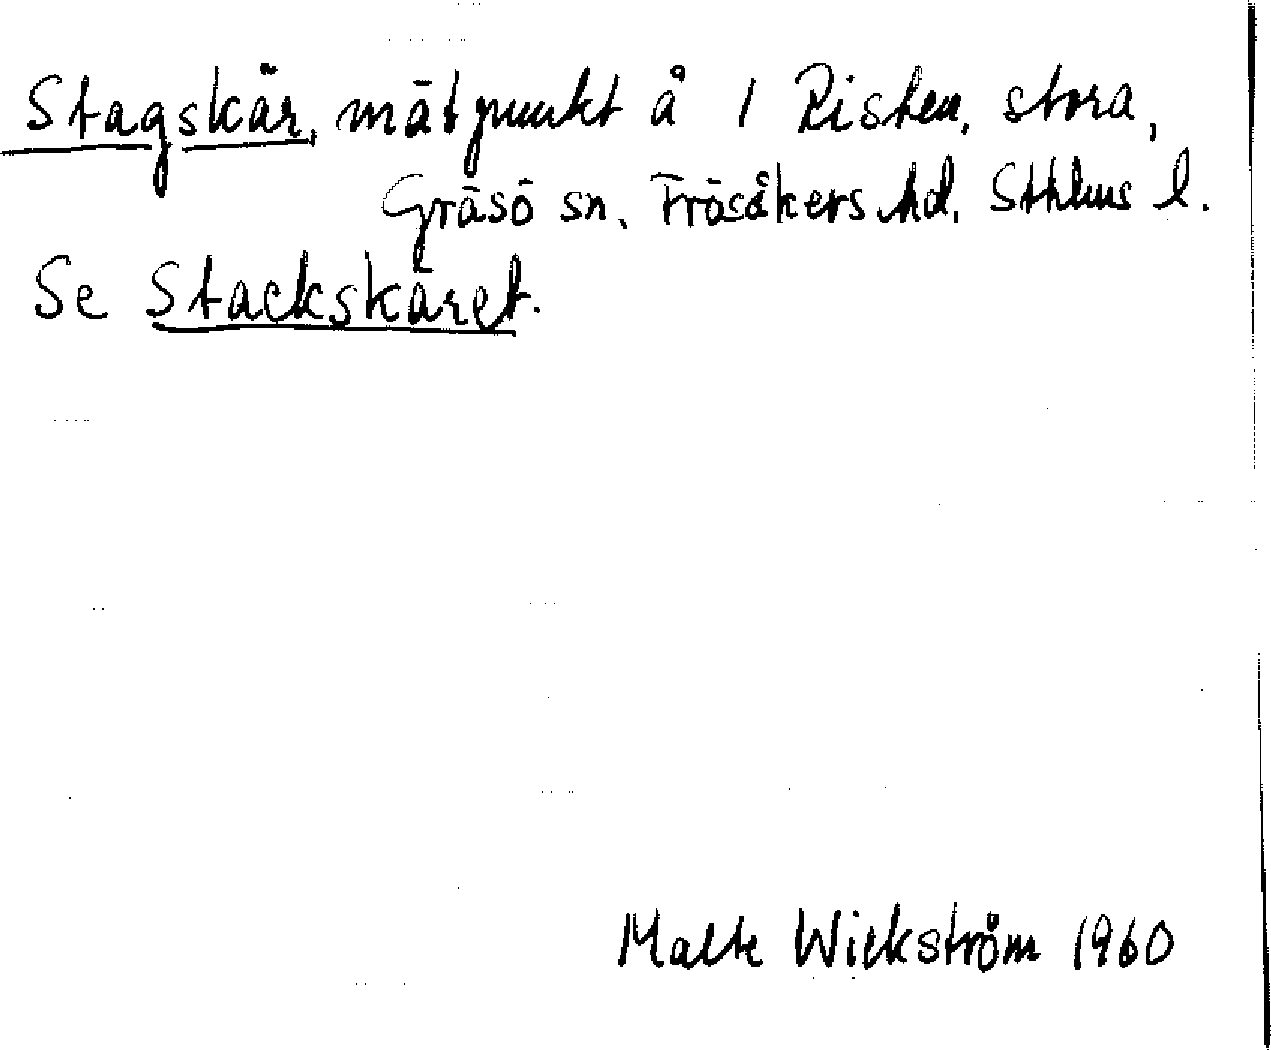 Stagskär, mätpunkt å 1 Risten, stora,
Gräsö sn, Frösåkers hd, Sthlms l.
Se Stackskäret.
Malte Wickström 1960